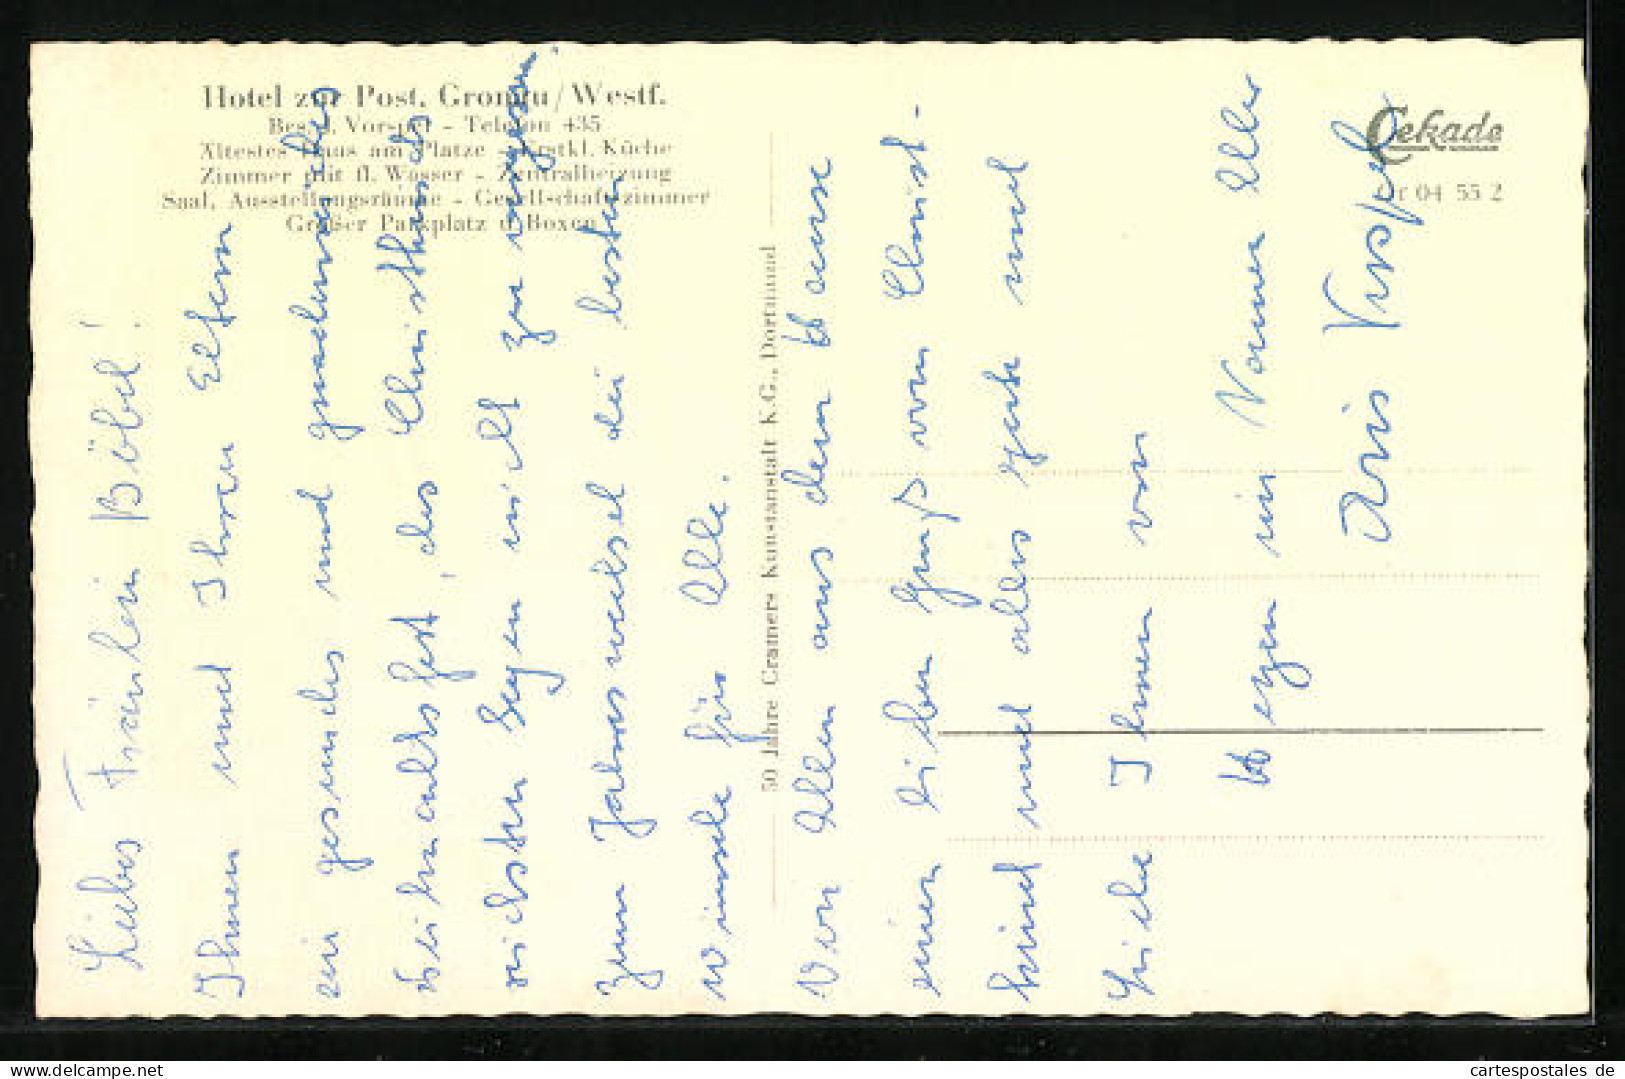 Hotel zur Post, Gronau/Westf.
Bes. J. Vorspel - Telefon 435
Ältestes Haus am Platze - Erstkl. Küche
Zimmer mit fl. Wasser - Zentralheizung
Saal, Ausstellungsräume - Gesellschaftszimmer
Großer Parkplatz u. Boxen
Cekade
Gr 04 55 2
50 Jahre Cramers Kunstanstalt K.G., Dortmund
Liebes Fräulein Böbel!
Ihnen und Ihren Eltern
ein gesundes und gnadenreiches
Weihnachtsfest, des Christkinds
reichsten Segen nicht zu vergessen.
Zum Jahreswechsel die besten
Wünsche für Alle.
Von Allen aus dem Hause
einen lieben Gruß vom Christ-
kind und alles Gute und
Liebe Ihnen von
Wegen im Namen Aller
Iris Vorspel
www.cartespostales.eu
cartespostales de